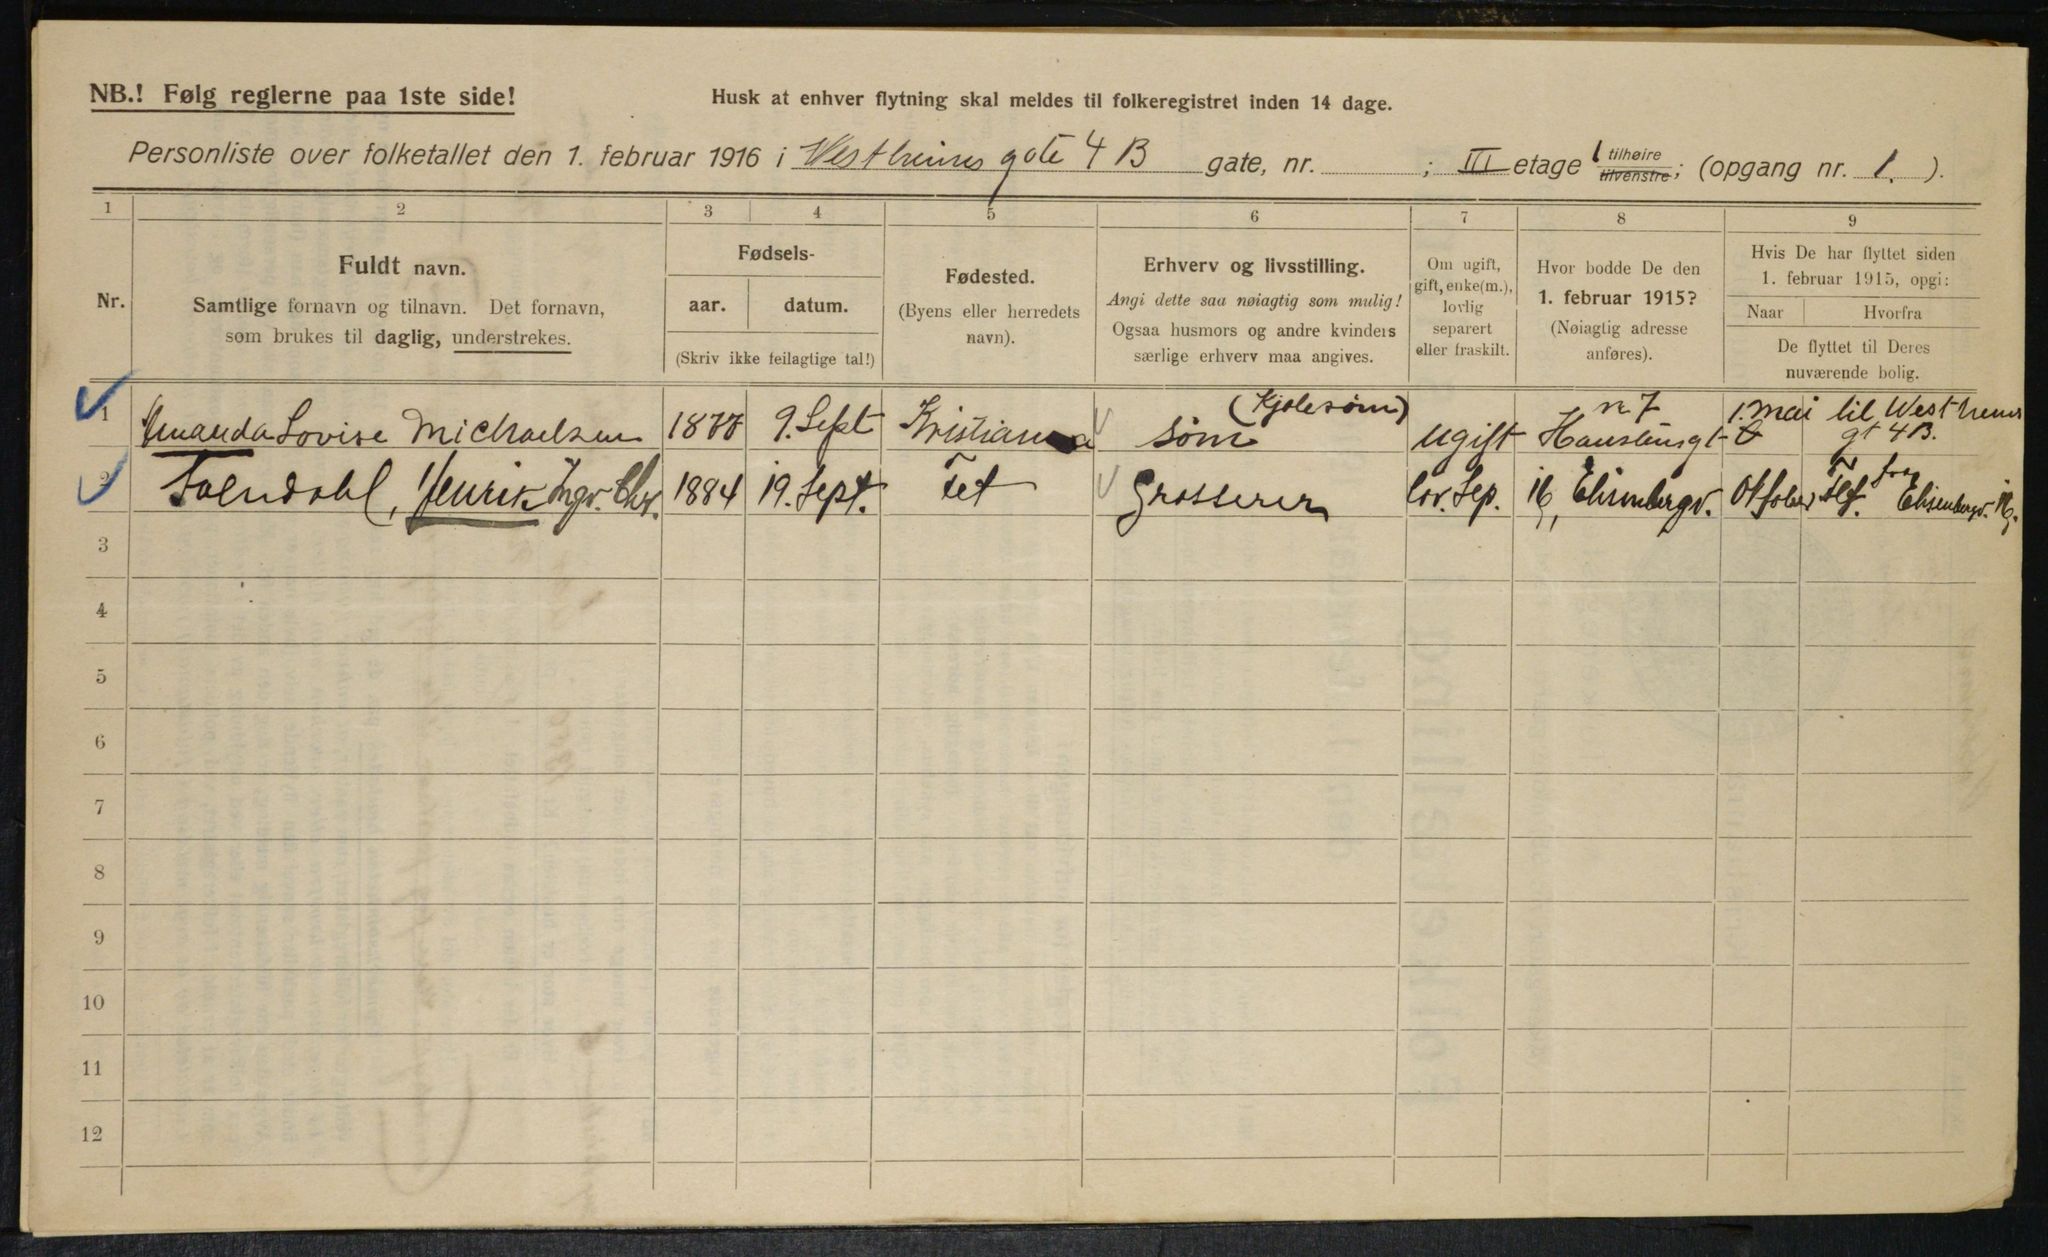 NB.! Følg reglerne paa 1ste side!
Husk at enhver flytning skal meldes til folkeregistret inden 14 dage.
Personliste over folketallet den 1. februar 1916 i Vestheims gate 4 B gate, nr. ; III etage 1 tilhøire tilvenstre; (opgang nr. 1. ).
1 2 3 4 5 6 7 8 9
Nr.
Fuldt navn.
Samtlige fornavn og tilnavn. Det fornavn,
som brukes til daglig, understrekes.
Fødsels-
aar. datum.
(Skriv ikke feilagtige tal!)
Fødested.
(Byens eller herredets
navn).
Erhverv og livsstilling.
Angi dette saa nøiagtig som mulig!
Ogsaa husmors og andre kvinders
særlige erhverv maa angives.
Om ugift,
gift, enke(m.),
lovlig
separert
eller fraskilt.
Hvor bodde De den
1. februar 1915?
(Nøiagtig adresse
anføres).
Hvis De har flyttet siden
1. februar 1915, opgi:
Naar Hvorfra
De flyttet til Deres
nuværende bolig.
1 Amanda Lovise Michaelsen 1877 9. Sept Kristiania søm (Kjolesøm) ugift n 7 Hauslunsgt 1. mai til Westheims gt 4 B.
2 Henrik Ingv. Chr. 1884 19. Sept. Fet Grosserer lov. Sep. 16, Ehrenbergv. Oktober Flf. fra Ehrenbergv. 16.
3
4
5
6
7
8
9
10
11
12